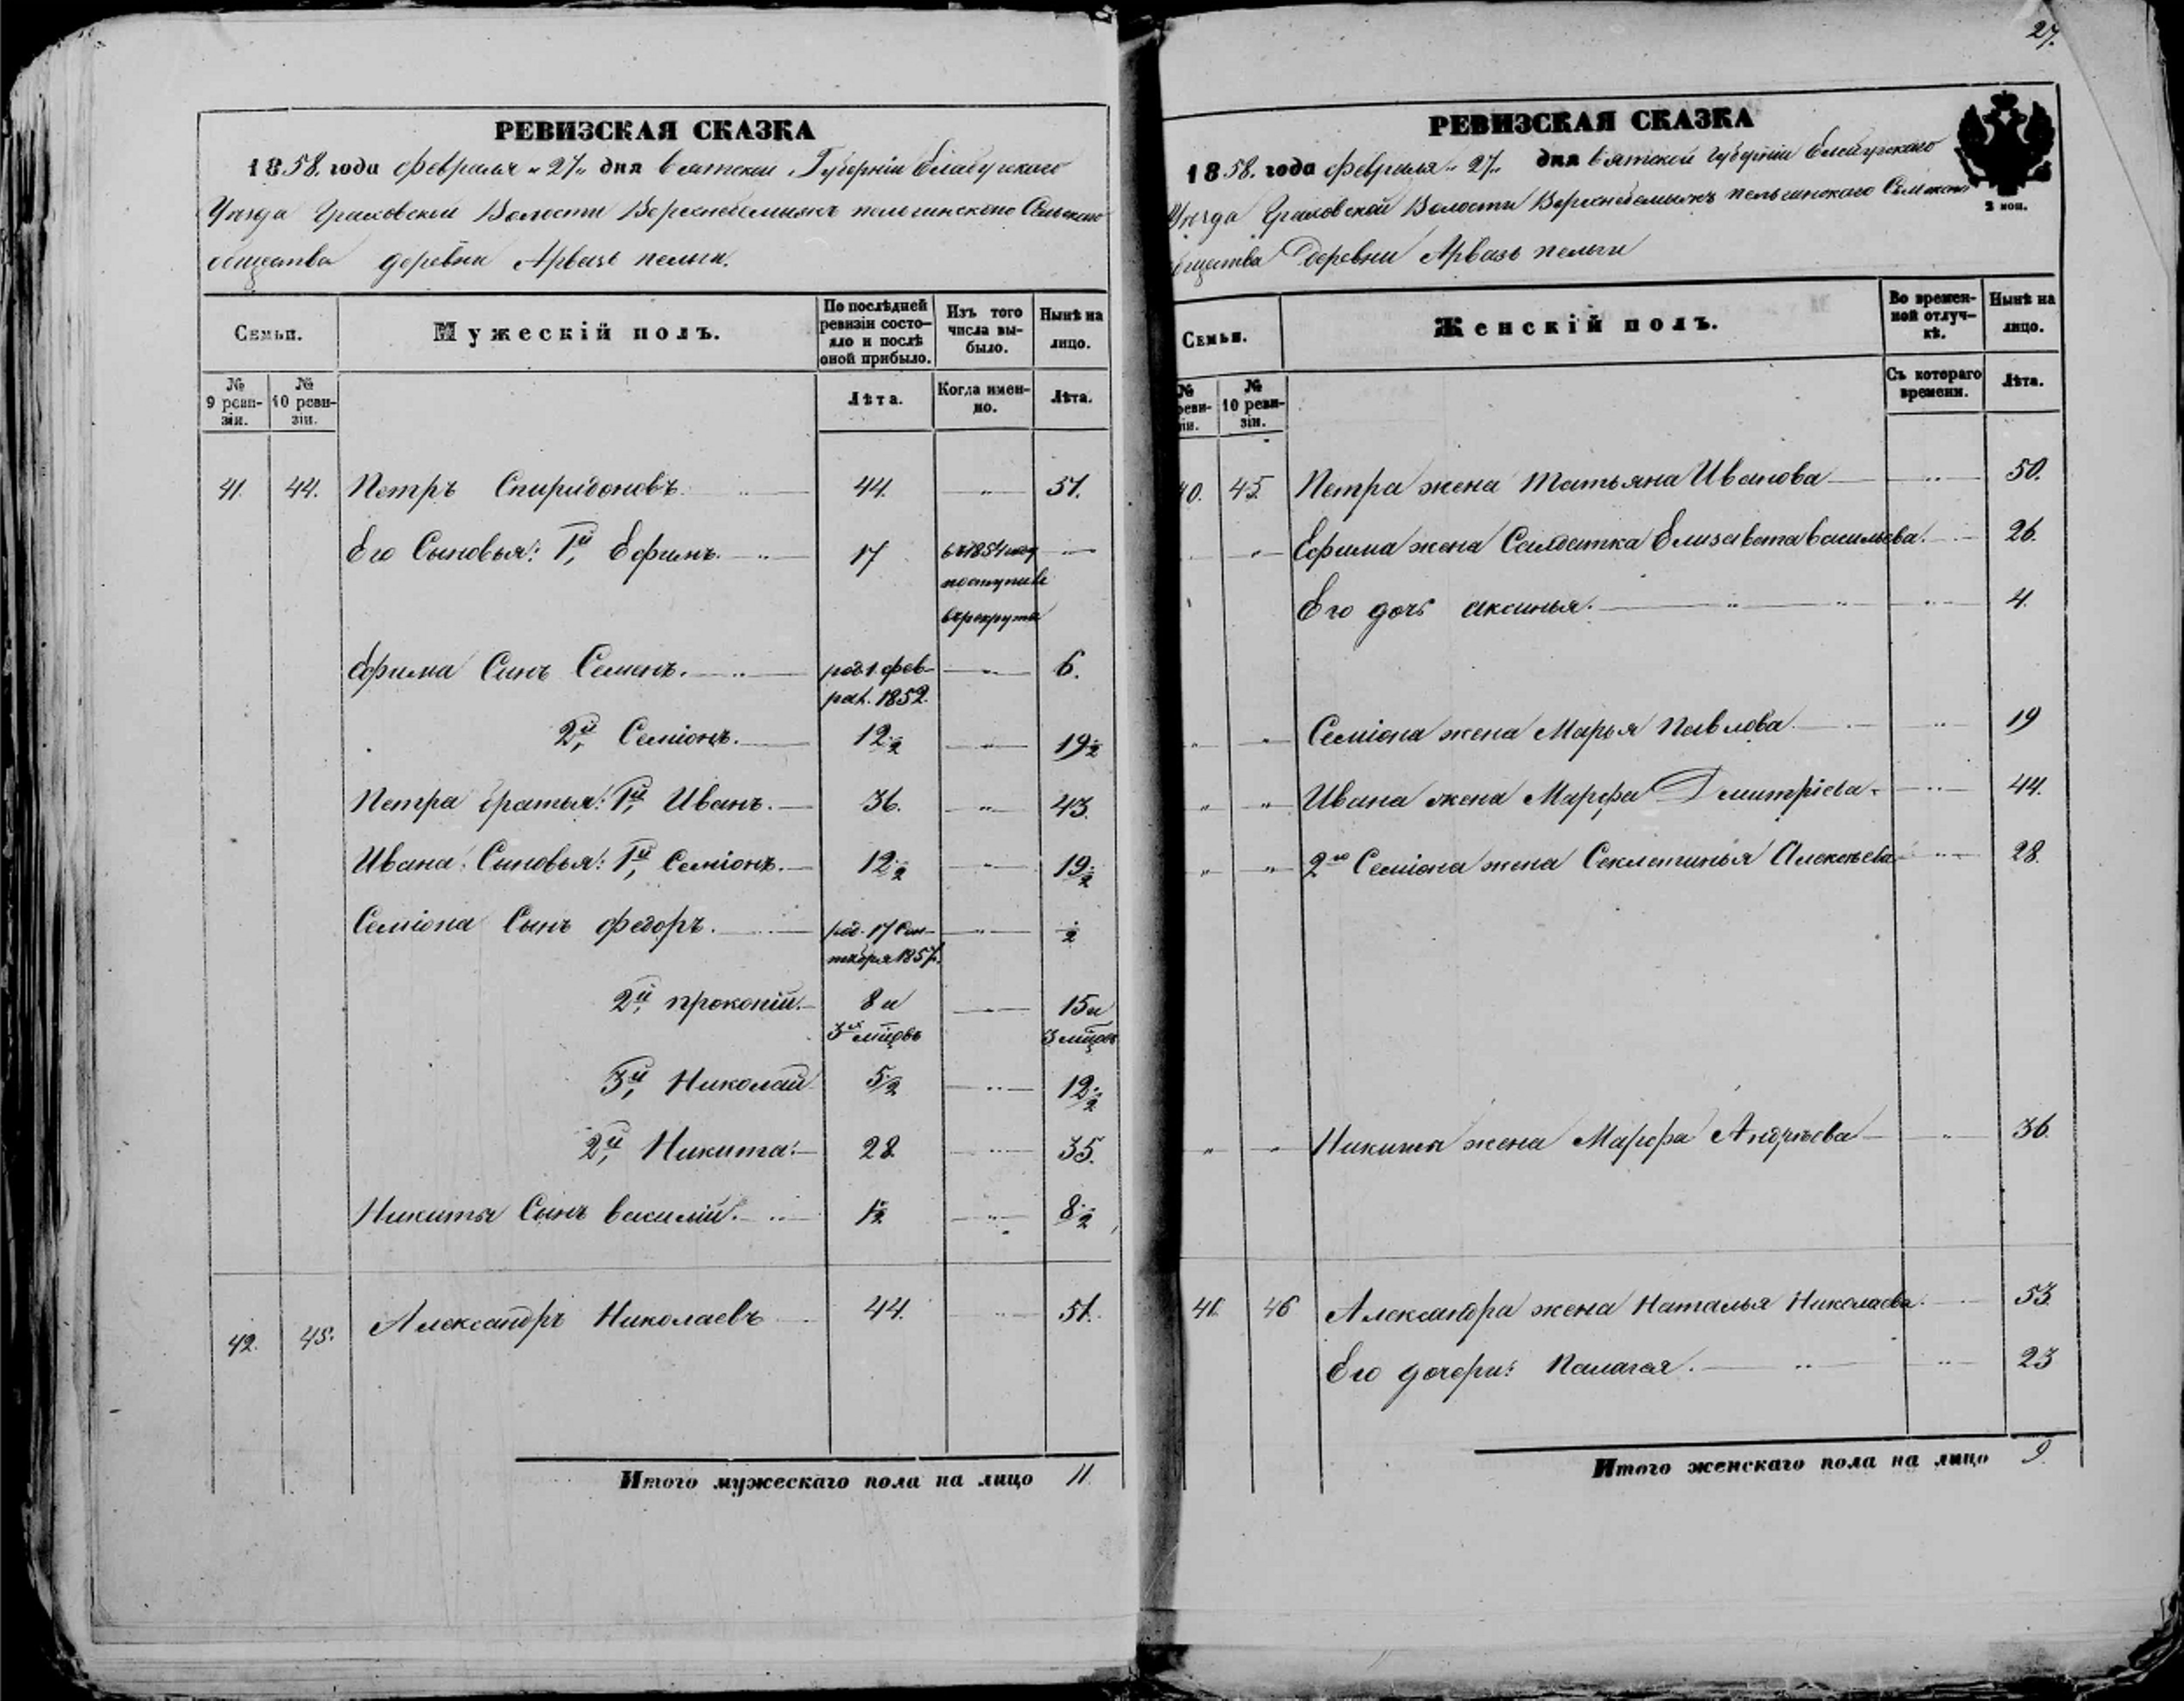 27.
РЕВИЗСКАЯ СКАЗКА
1858. года февраля „27„ дня вятской Губерніи Елабугскаго
Уѣзда Граховской Волости Верхнебемыжъ пельгинскаго Сельскаго
общества деревни Арвазь пельги.
Семьи.
Мужескій полъ.
По послѣдней ревизіи состо-
яло и послѣ оной прибыло.
Изъ того числа вы-
было.
Нынѣ на лицо.
№ 9 реви-
зіи.
№ 10 реви-
зіи.
Лѣта.
Когда имен-
но.
Лѣта.
41. 44. Петръ Спиридоновъ. 44. 51.
Его Сыновья: 1й Ефимъ. 17 въ 1854 году
поступилъ
въ рекрута
Ефима Сынъ Семенъ. род 1. фев- 6.
рал. 1852.
2й Семіонъ. 12 ½ 19 ½
Петра братья: 1й Иванъ. 36. 43.
Ивана Сыновья: 1й Семіонъ. 12 ½ 19 ½
Семіона Сынъ федоръ. род. 17 Сен- ½
тября 1857.
2й прокопій. 8 и 15 и
3 мцовъ 3 мцовъ
3й Николай 5/2 12 ½
2й Никита: 28. 35.
Никиты Сынъ василій. 1½ 8 ½
42. 45. Александръ Николаевъ 44. 51.
Итого мужескаго пола на лицо 11.
РЕВИЗСКАЯ СКАЗКА
1858. года февраля „27„ дня вятской губерніи Елабугскаго
Уѣзда Граховской Волости Верхнебемыжъ пельгинскаго Сельскаго
общества Деревни Арвазь пельги
2 коп.
Семьи.
Женскій полъ.
Во времен-
ной отлуч-
кѣ.
Нынѣ на лицо.
№
реви-
зіи.
№ 10 реви-
зіи.
Съ котораго времени.
Лѣта.
40. 45. Петра жена Татьяна Иванова 50.
Ефима жена Салдатка Елизавета васильева. 26.
Его дочь аксинья. 4.
Семіона жена Марья Павлова 19
Ивана жена Марфа Дмитріева 44.
2го Семіона жена Секлетинья Алексѣева 28.
Никиты жена Марфа Андрѣева 36.
41. 46 Александра жена Наталья Николаева. 53.
Его дочери: Палагея. 23
Итого женскаго пола на лицо 9.